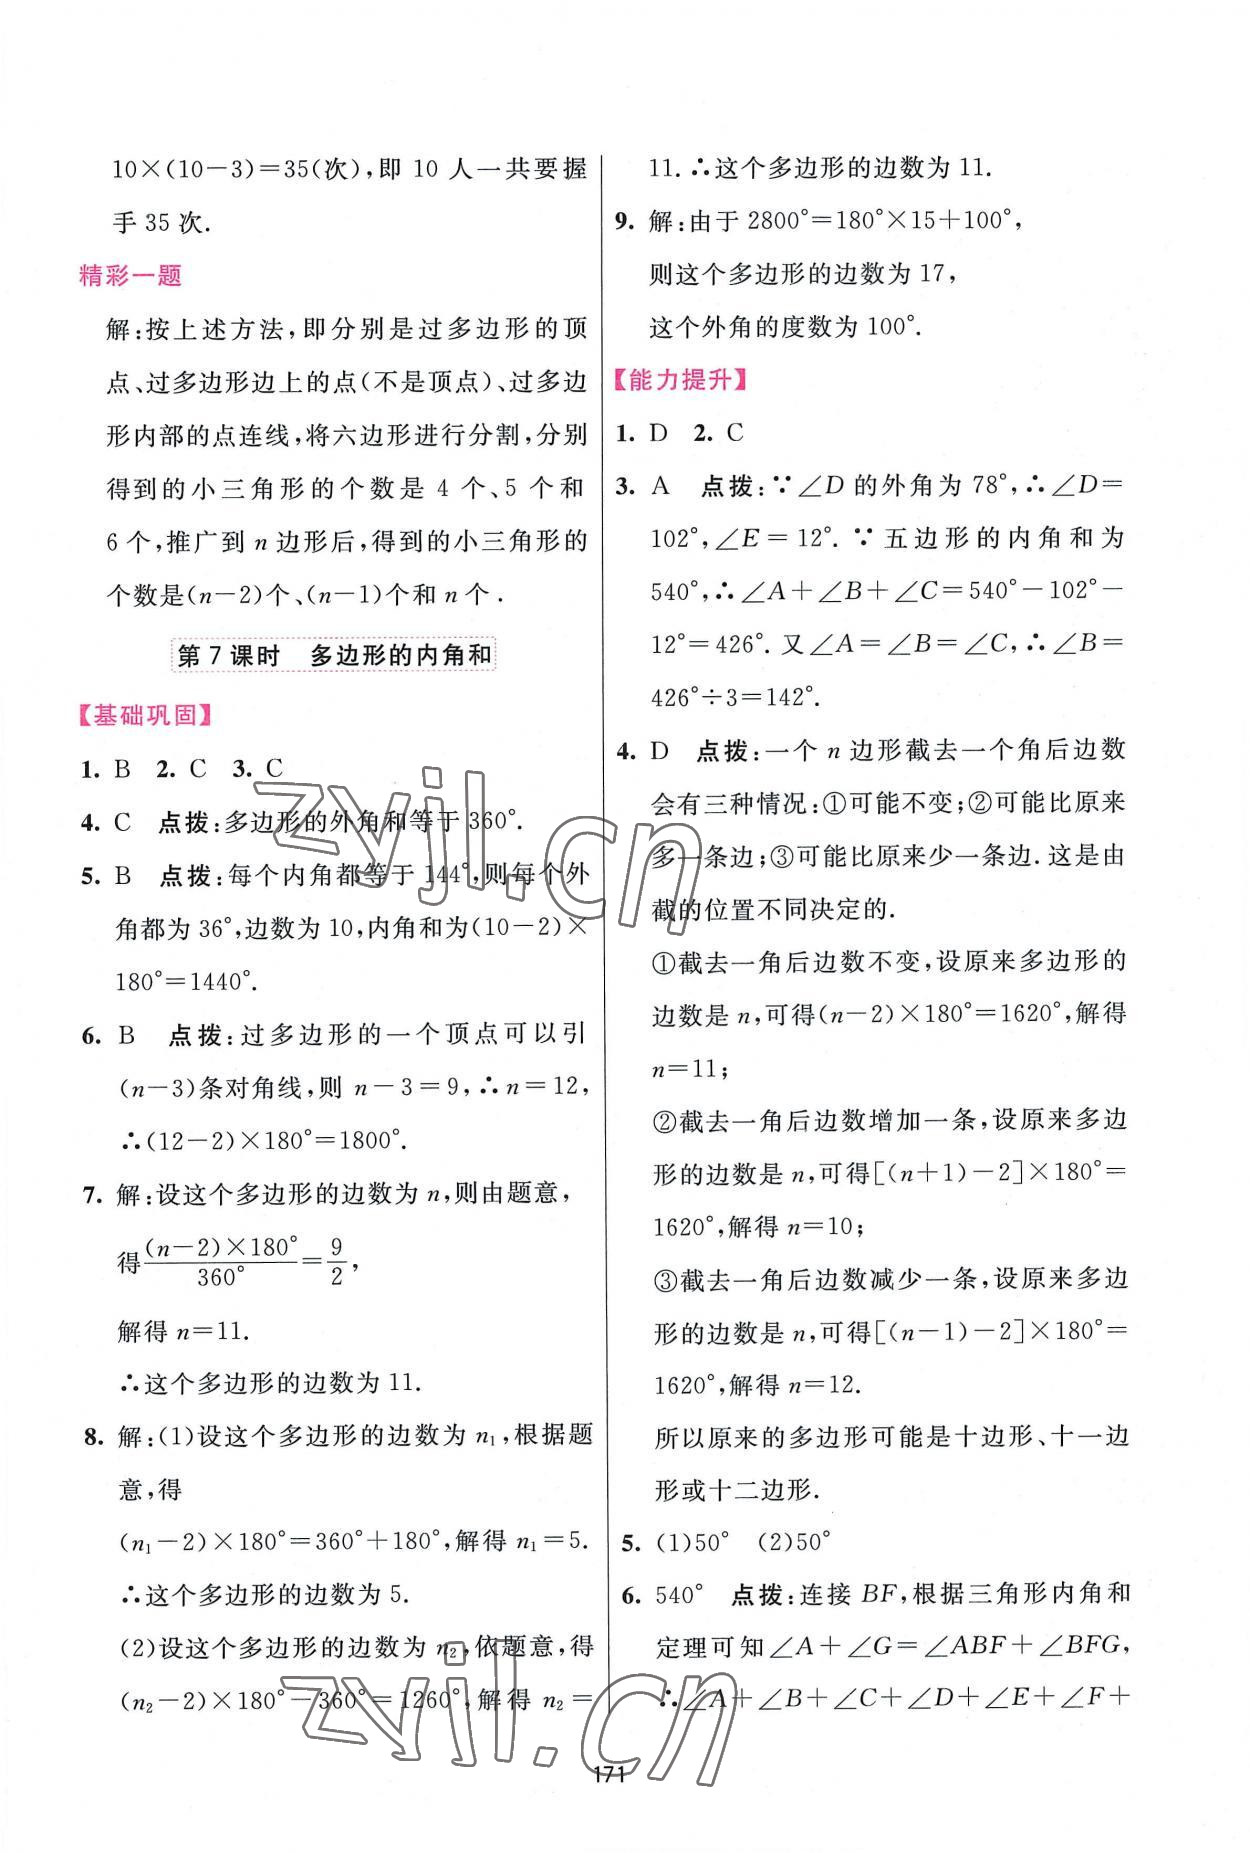 10×(10－3)＝35(次),即 10 人一共要握
手 35 次.
精彩一题
解:按上述方法,即分别是过多边形的顶
点、过多边形边上的点(不是顶点)、过多边
形内部的点连线,将六边形进行分割,分别
得到的小三角形的个数是 4 个、5 个和
6 个,推广到 n 边形后,得到的小三角形的
个数是(n－2)个、(n－1)个和 n 个.
第 7 课时　多边形的内角和
【基础巩固】
1. B　2. C　3. C
4. C　点拨:多边形的外角和等于 360°.
5. B　点拨:每个内角都等于 144°,则每个外
角都为 36°,边数为 10,内角和为(10－2)×
180°＝1440°.
6. B　点拨:过多边形的一个顶点可以引
(n－3)条对角线,则 n－3＝9,∴n＝12,
∴(12－2)×180°＝1800°.
7. 解:设这个多边形的边数为 n,则由题意,
得(n－2)×180°/360°＝9/2,
解得 n＝11.
∴这个多边形的边数为 11.
8. 解:(1)设这个多边形的边数为 n₁,根据题
意,得
(n₁－2)×180°＝360°＋180°,解得 n₁＝5.
∴这个多边形的边数为 5.
(2)设这个多边形的边数为 n₂,依题意,得
(n₂－2)×180°－360°＝1260°,解得 n₂＝
11.∴这个多边形的边数为 11.
9. 解:由于 2800°＝180°×15＋100°,
则这个多边形的边数为 17,
这个外角的度数为 100°.
【能力提升】
1. D　2. C
3. A　点拨:∵∠D 的外角为 78°,∴∠D＝
102°,∠E＝12°.∵五边形的内角和为
540°,∴∠A＋∠B＋∠C＝540°－102°－
12°＝426°.又∠A＝∠B＝∠C,∴∠B＝
426°÷3＝142°.
4. D　点拨:一个 n 边形截去一个角后边数
会有三种情况:①可能不变;②可能比原来
多一条边;③可能比原来少一条边.这是由
截的位置不同决定的.
①截去一角后边数不变,设原来多边形的
边数是 n,可得(n－2)×180°＝1620°,解得
n＝11;
②截去一角后边数增加一条,设原来多边
形的边数是 n,可得[(n＋1)－2]×180°＝
1620°,解得 n＝10;
③截去一角后边数减少一条,设原来多边
形的边数是 n,可得[(n－1)－2]×180°＝
1620°,解得 n＝12.
所以原来的多边形可能是十边形、十一边
形或十二边形.
5. (1)50°　(2)50°
6. 540°　点拨:连接 BF,根据三角形内角和
定理可知∠A＋∠G＝∠ABF＋∠BFG,
∴∠A＋∠B＋∠C＋∠D＋∠E＋∠F＋
171
zyjl.cn
zyjl.cn